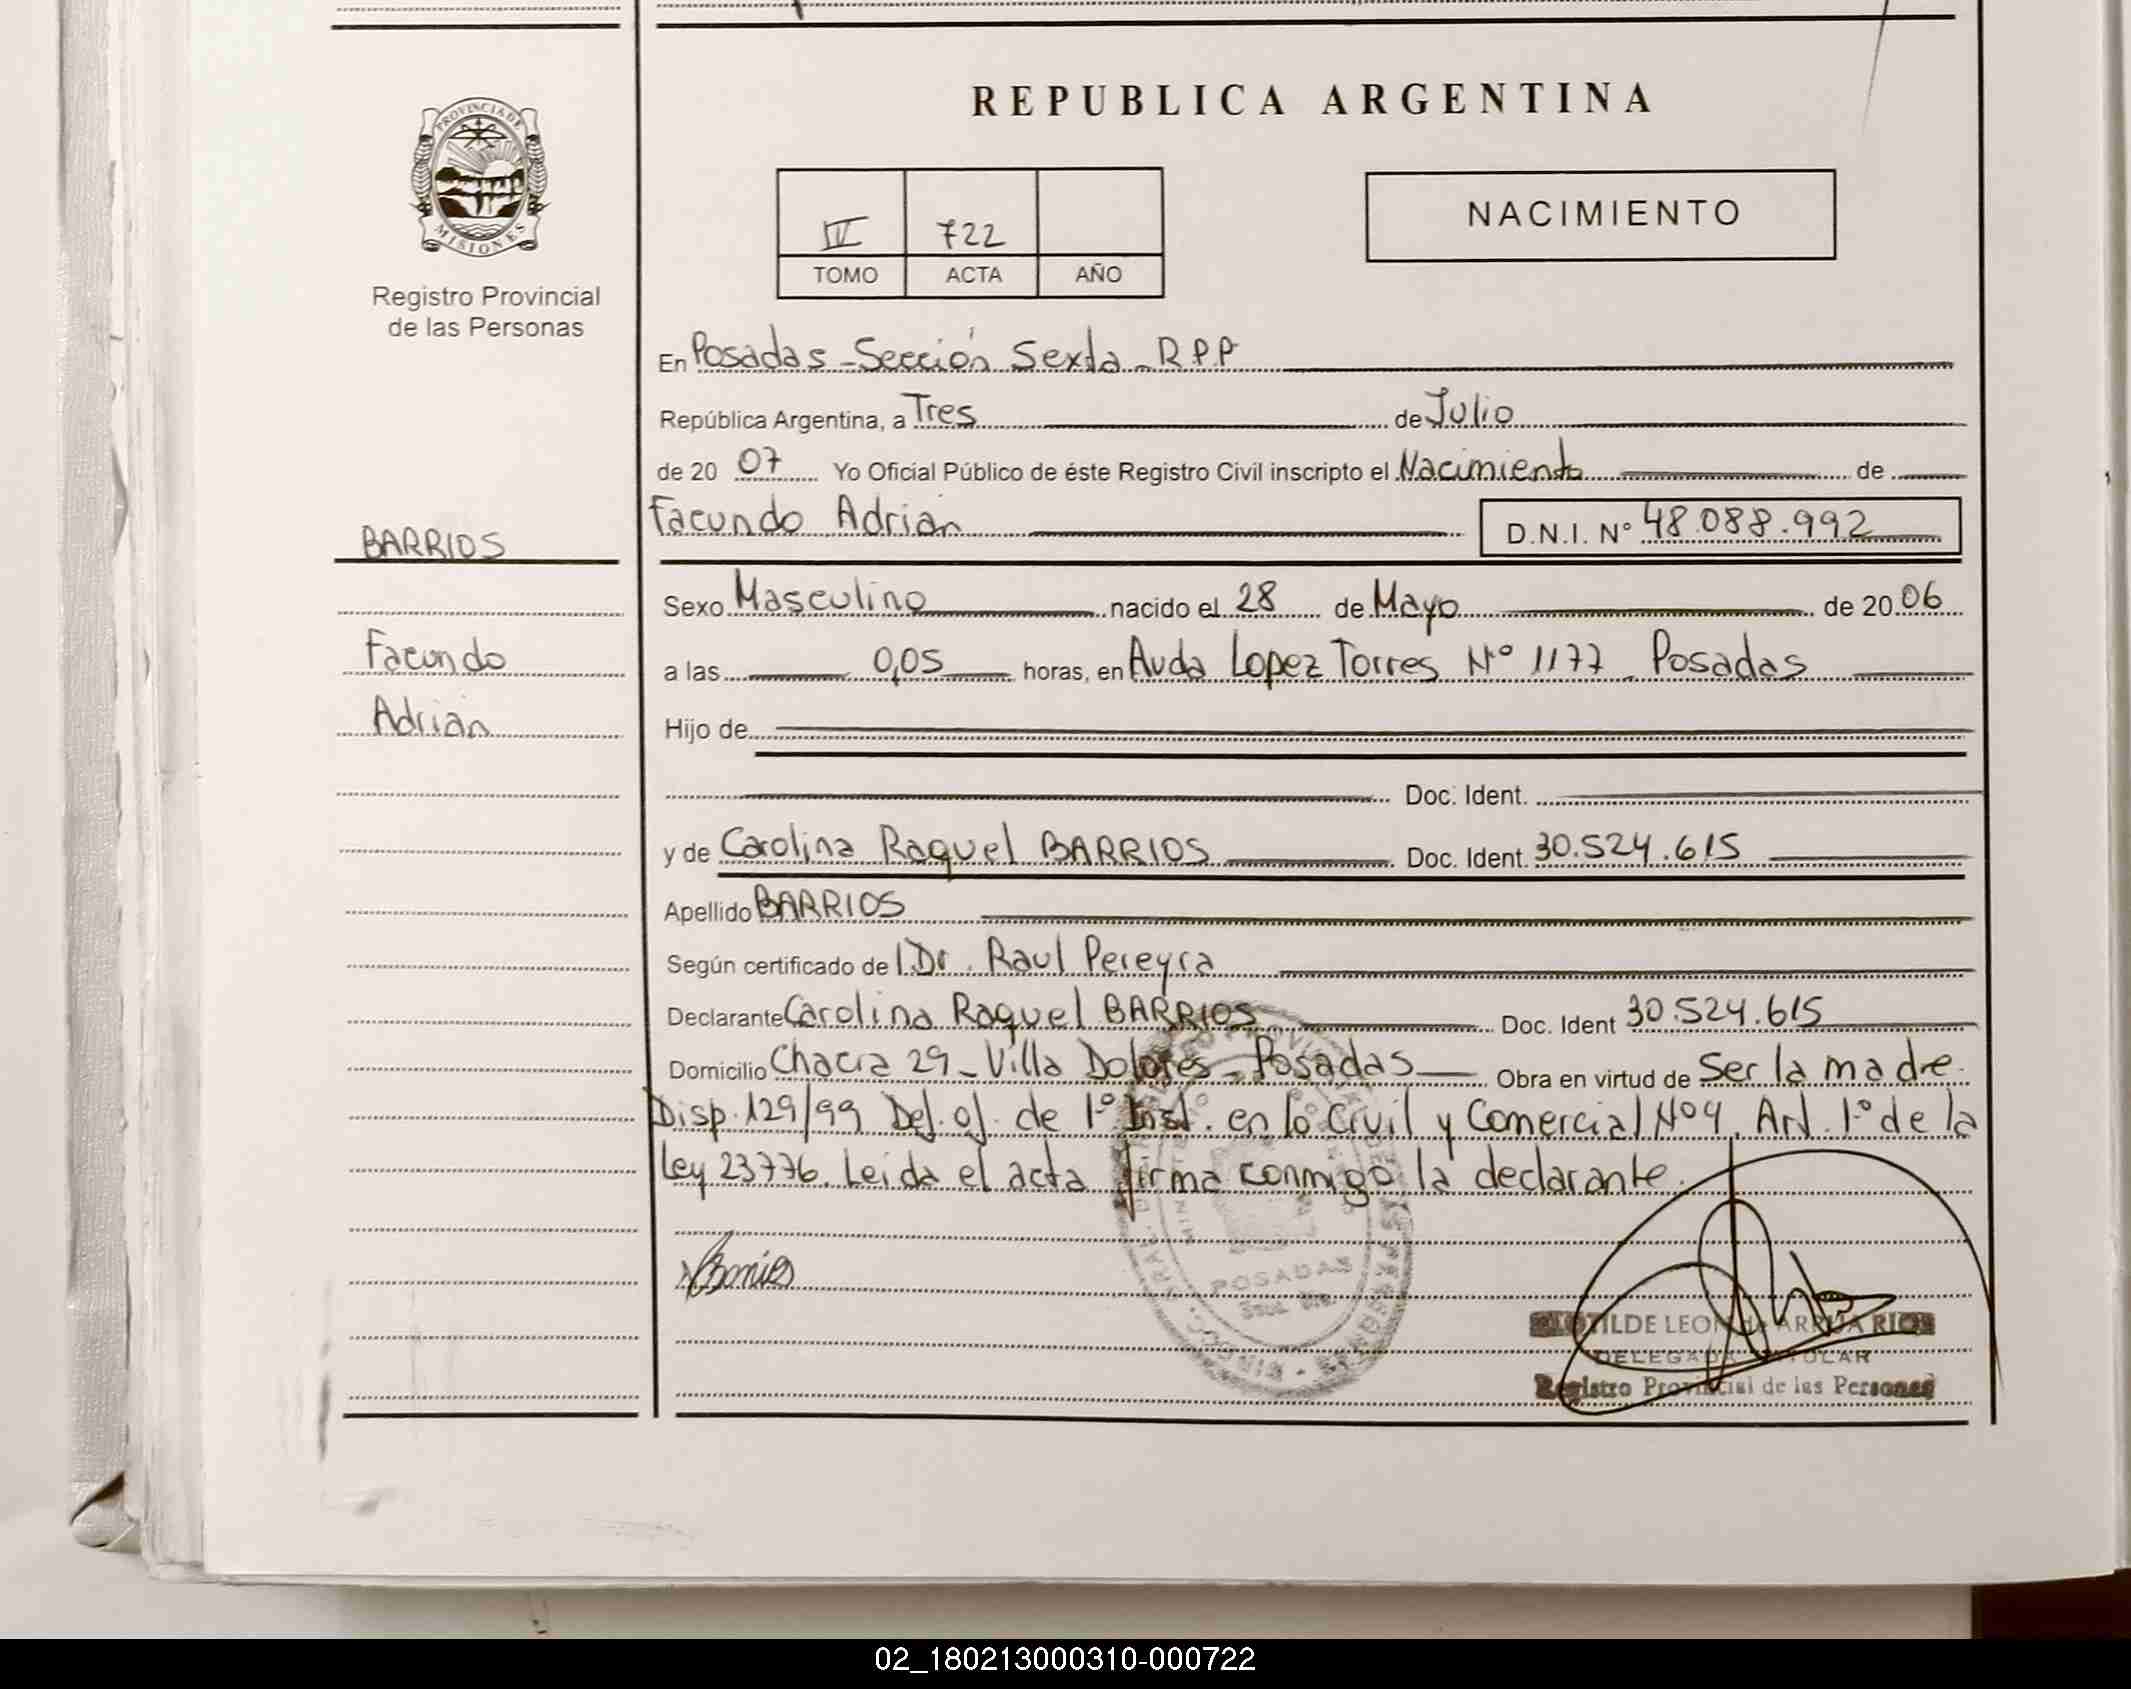 REPUBLICA ARGENTINA
PROVINCIA DE
MISIONES
Registro Provincial
de las Personas
IV 722
TOMO ACTA AÑO
NACIMIENTO
En Posadas - Sección Sexta - R.P.P
República Argentina, a Tres de Julio
de 20 07 Yo Oficial Público de éste Registro Civil inscripto el Nacimiento de
Facundo Adrián D.N.I. Nº 48.088.992
BARRIOS
Facundo
Adrián
Sexo Masculino nacido el 28 de Mayo de 20 06
a las 0,05 horas, en Avda Lopez Torres Nº 1177 - Posadas
Hijo de
Doc. Ident.
y de Carolina Raquel BARRIOS Doc. Ident. 30.524.615
Apellido BARRIOS
Según certificado de l Dr. Raul Pereyra
Declarante Carolina Raquel BARRIOS Doc. Ident 30.524.615
Domicilio Chacra 29 - Villa Dolores - Posadas Obra en virtud de Ser la madre.
Disp. 129/99 Def. of. de 1º Inst. en lo Civil y Comercial Nº 4. Art. 1º de la
Ley 23776. Leida el acta firma conmigo la declarante.
Barrios
POSADAS
CLOTILDE LEON de ARRUA RIOS
DELEGADA TITULAR
Registro Provincial de las Personas
02_180213000310-000722